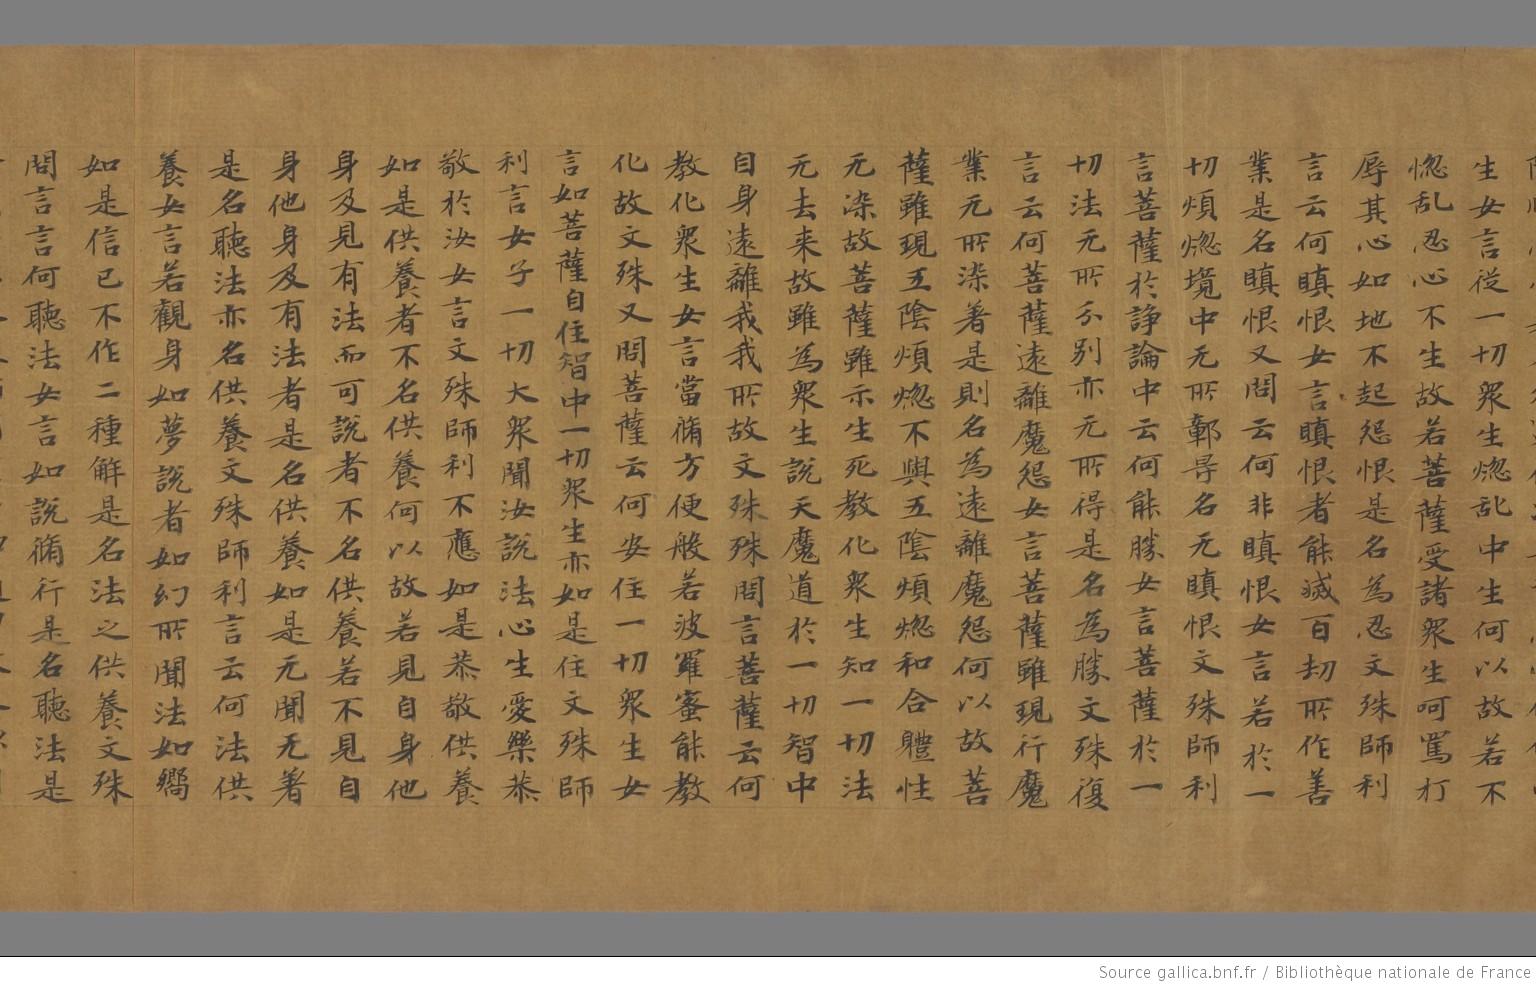 生女言從一切眾生惚乱中生何以故若不
惚乱忍心不生故若菩薩受諸眾生呵罵打
辱其心如地不起怨恨是名為忍文殊師利
言云何瞋恨女言瞋恨者能滅百劫所作善
業是名瞋恨又問云何非瞋恨女言若於一
切煩惚境中无所鄣导名无瞋恨文殊師利
言菩薩於諍論中云何能勝女言菩薩於一
切法无所分別亦无所得是名為勝文殊復
言云何菩薩遠離魔怨女言菩薩雖現行魔
業无所染著是則名為遠離魔怨何以故菩
薩雖現五陰煩惚不與五陰煩惚和合體性
无染故菩薩雖示生死教化眾生知一切法
无去来故雖為眾生說天魔道於一切智中
自身遠離我我所故文殊殊問言菩薩云何
教化眾生女言當脩方便般若波羅蜜能教
化故文殊又問菩薩云何安住一切眾生女
言如菩薩自住智中一切眾生亦如是住文殊師
利言女子一切大眾聞汝說法心生愛樂恭
敬於汝女言文殊師利不應如是恭敬供養
如是供養者不名供養何以故若見自身他
身及見有法而可說者不名供養若不見自
身他身及有法者是名供養如是无聞无著
是名聽法亦名供養文殊師利言云何法供
養女言若觀身如夢說者如幻所聞法如嚮
如是信已不作二種解是名法之供養文殊
問言言何聽法女言如說脩行是名聽法是
Source gallica.bnf.fr / Bibliothèque nationale de France